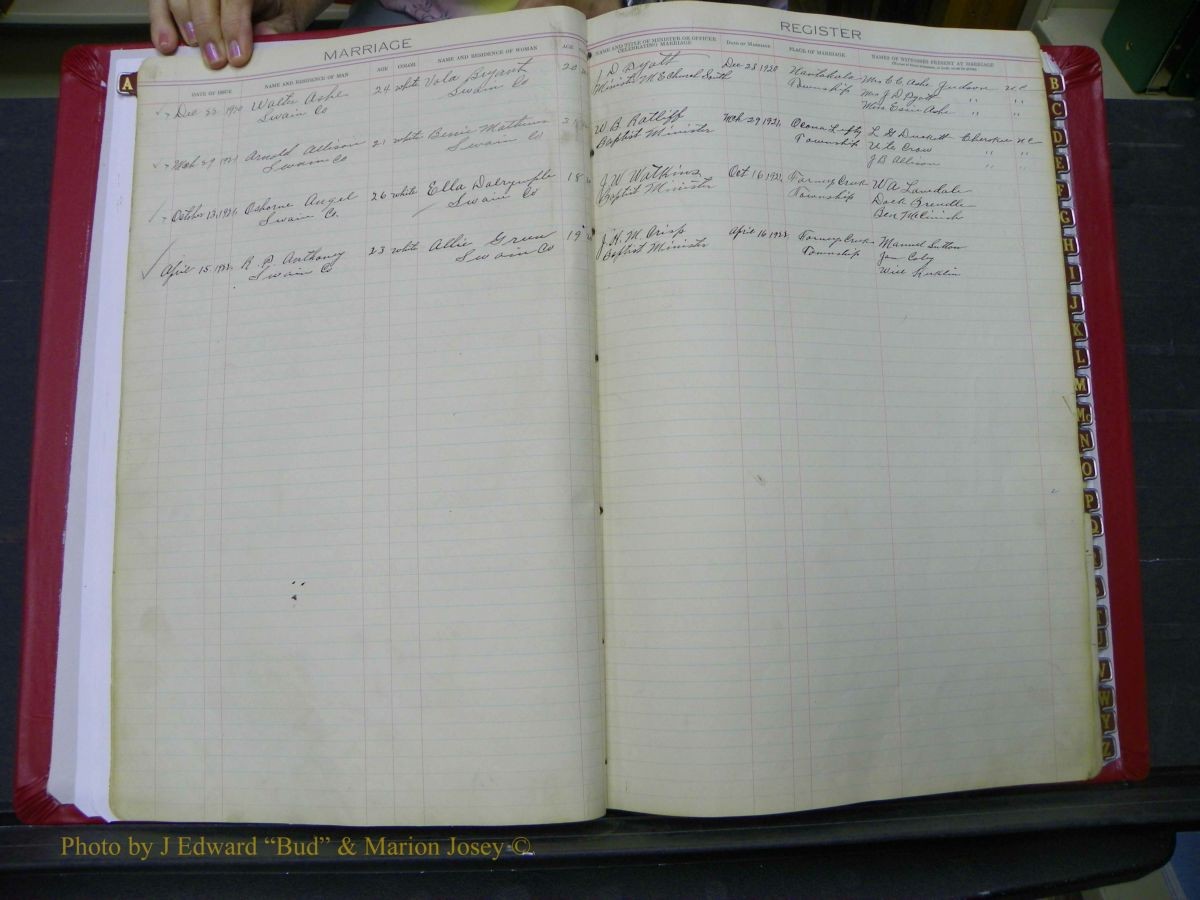 MARRIAGE
REGISTER
DATE OF ISSUE NAME AND RESIDENCE OF MAN AGE COLOR NAME AND RESIDENCE OF WOMAN AGE
NAME AND TITLE OF MINISTER OR OFFICER CELEBRATING MARRIAGE DATE OF MARRIAGE PLACE OF MARRIAGE NAMES OF WITNESSES PRESENT AT MARRIAGE
Dec 22 1920 Walter Ashe 24 white Vola Bryant 20
Swain Co Swain Co
J D Pyatt Dec 23 1920 Nantahala Mrs C C Ashe Judson N C
Minister M E Church South Township Mrs J D Pyatt " "
Miss Essie Ashe " "
Mch 29 1921 Arnold Allison 21 white Bessie Mathews
Swain Co Swain Co
W B Ratliff Mch 29 1921 Ocona Lufty L G Duckett Cherokee N C
Baptist Minister Township Ute Crow " "
J B Allison " "
October 13, 1921 Osborne Angel 26 white Ella Dalrymple 18
Swain Co. Swain Co
J. W. Watkins Oct 16 1921 Forney Creek W A
Baptist Minister Township Dock Brendle
Ben
April 15, 1922 R. P. Anthony 23 white Allie Green 19
Swain Co Swain Co
J. H. M. Crisp April 16 1922 Forney Creek Manuel Sutton
Baptist Minister Township Jan Coly
Will
A
B
C
D
E
F
G
H
I
J
K
L
M
Mc
N
O
P
V
W
Y
Z
Photo by J Edward “Bud” & Marion Josey ©